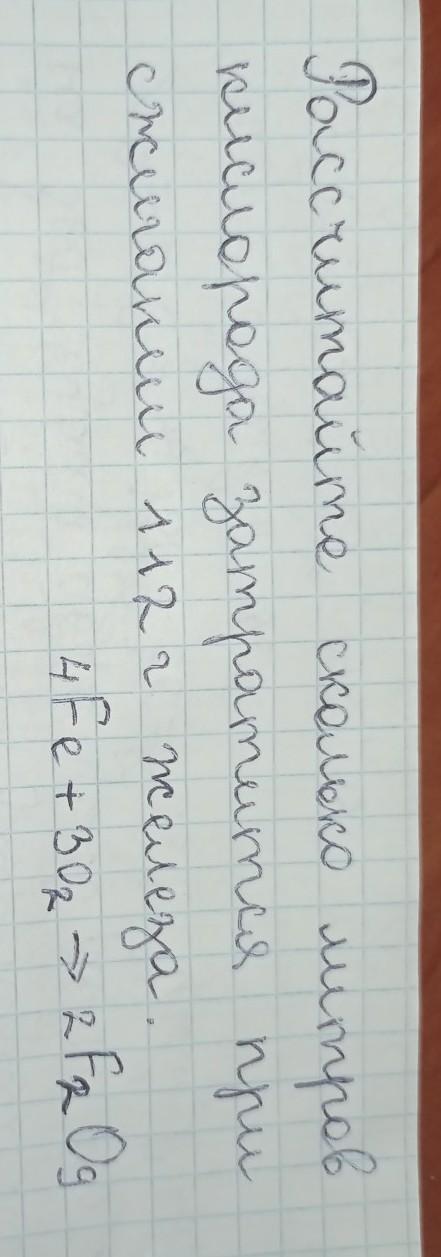 Рассчитайте сколько литров
кислорода затратится при
сжигании 112 г железа.
4Fe + 3O₂ → 2F₂O₃